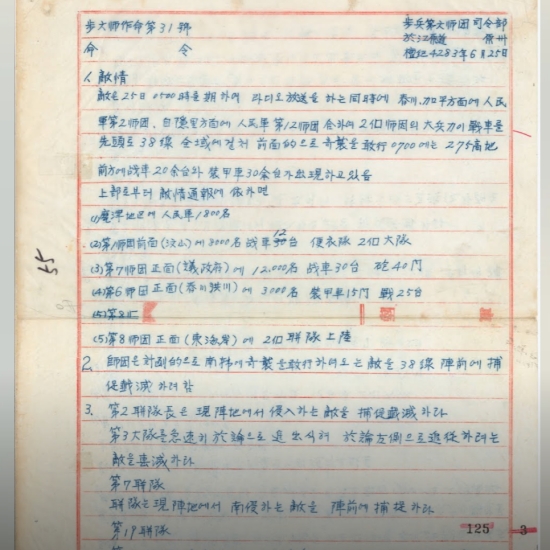 步大师作命第31號
命 令
步兵第六师团司令部
於江原道 原州
檀紀4283年6月25日
1. 敵情
敵은 25日 0500時를 期하여 라디오放送을 하는 同時에 春川, 加平方面에 人民
軍第2师团, 自隱里方面에 人民軍 第12师团 合하여 2個师团의 大兵力이 戰車를
先頭로 38線 全域에 걸처 前面的으로 奇襲을 敢行 0700에는 275高地
前方에 战車 20余台와 裝甲車 30余台가 出現하고 있음
上部로부터 敵情通報에 依하면
(1) 甕津地区에 人民軍 1800名
(2) 第1师团前面(汶山)에 8000名 战車 12台 便衣隊 2個大隊
(3) 第7师团 正面(議政府)에 12,000名 战車30台 砲40门
(4) 第6师团 正面(春川洪川)에 3000名 裝甲車15门 戰25台
(5) 第8师团 正面(東海岸)에 2個 联隊 上陸
2. 师团은 計劃的으로 南韩에 奇襲을 敢行하려는 敵을 38線 陣前에 捕
促戩滅하려 함
3. 第2联隊長은 現陣地에서 侵入하는 敵을 捕促戩滅하라
第3大隊를 急速히 於論으로 進出시켜 於論左側으로 進從하려는
敵을 滅하라
第7联隊
联隊는 現陣地에서 南侵하는 敵을 陣前에 捕捉하라
第19联隊
55
125
3